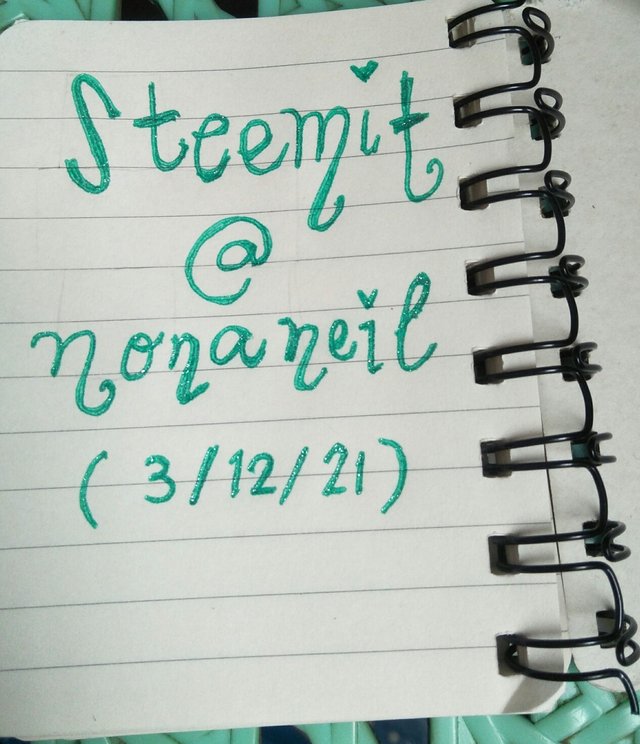 Steemit
@
nonaneil
( 3/12/21 )